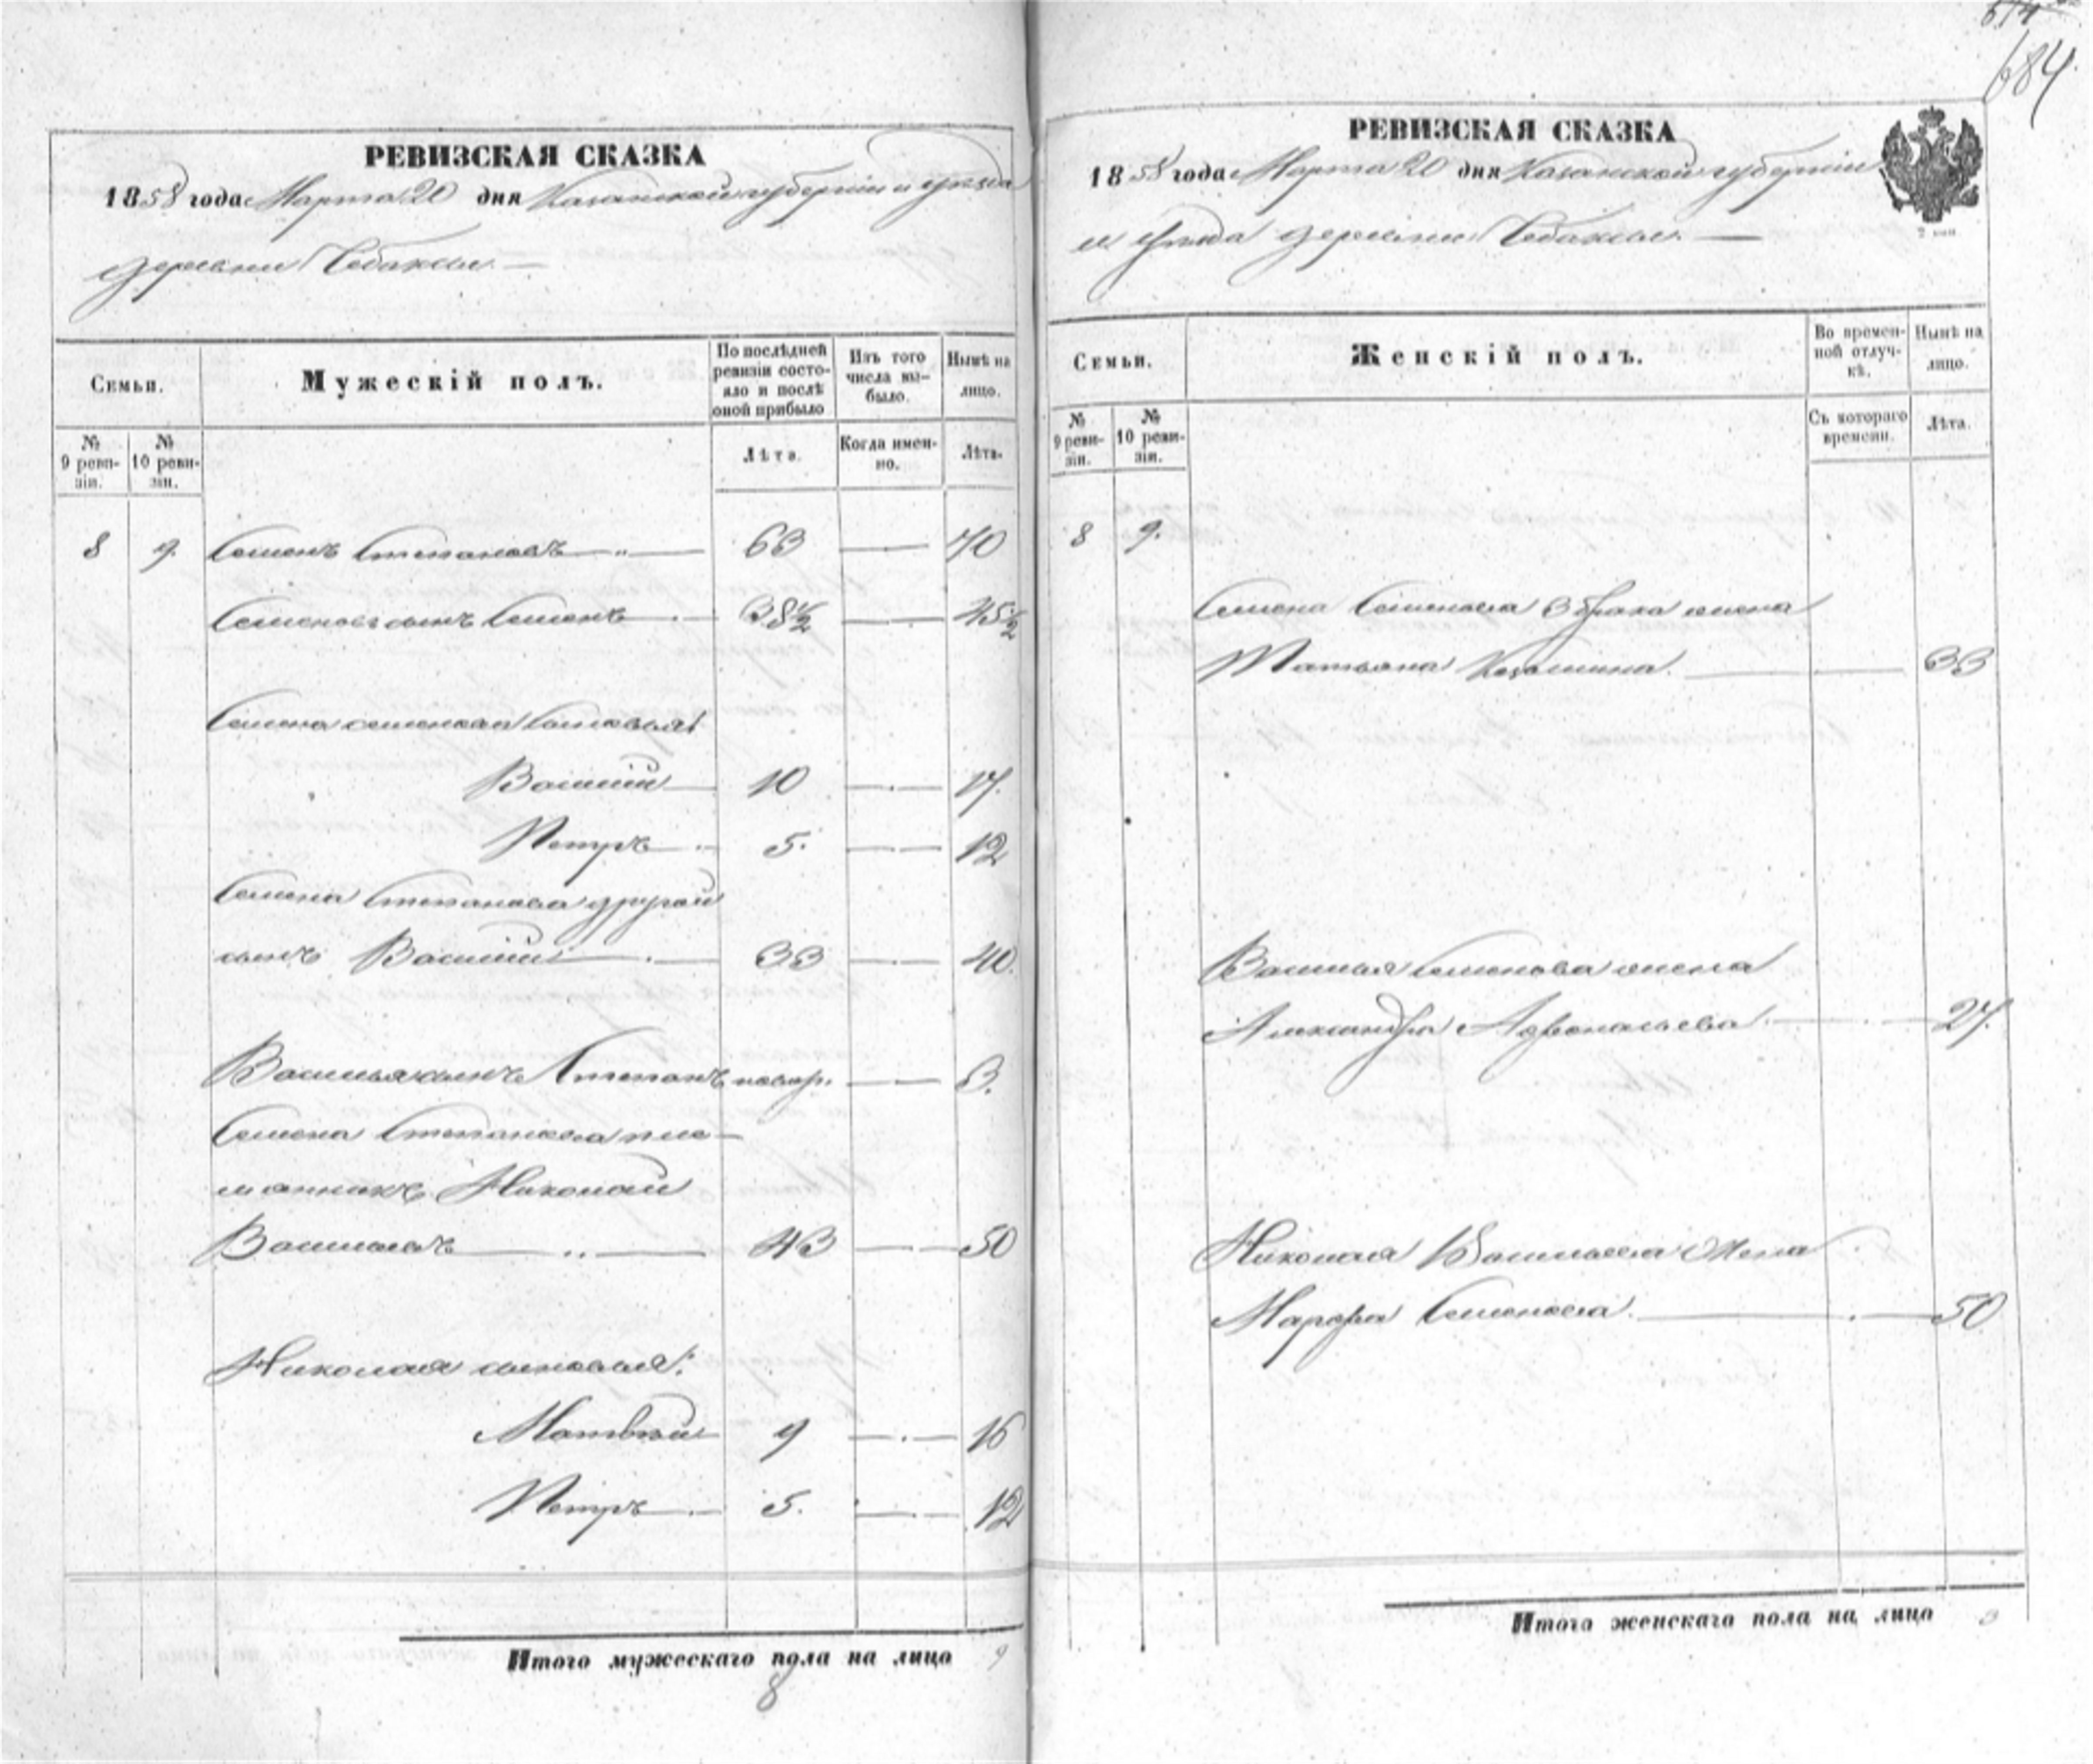 674
684
РЕВИЗСКАЯ СКАЗКА
1858 года Марта 20 дня Казанской губернии и уезда
деревни
Семьи. Мужескій полъ. По послѣдней ревизіи состояло и послѣ оной прибыло Изъ того числа выбыло. Нынѣ на лицо.
№ 9 ревизіи. № 10 ревизіи. Лѣта. Когда именно. Лѣта.
8 9. Семенъ Степановъ 63 70
Семеновъ сынъ Семенъ 38½ 45½
Семена Семенова сыновья
Василій 10 17.
Петръ 5. 12
Семена Степанова другой
сынъ Василій 33 40.
Василья сынъ Степанъ новор. 3.
Семена Степанова пле-
мянникъ Николай
Васильевъ 43 50
Николая сыновья:
Матвѣй 9 16
Петръ 5. 12
Итого мужескаго пола на лицо 9
8
РЕВИЗСКАЯ СКАЗКА
1858 года Марта 20 дня Казанской губерніи
и уѣзда деревни
2 коп.
Семьи. Женскій полъ. Во временной отлучкѣ. Нынѣ на лицо.
№ 9 ревизіи. № 10 ревизіи. Съ котораго времени. Лѣта.
8 9.
Семена Семенова 3 брака жена
Татьяна Козьмина. 33
Василья Семенова жена
Александра Афонасьева 27.
Николая Васильева жена
Марфа Семенова. 50
Итого женскаго пола на лицо 3